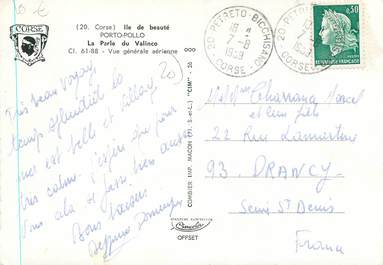 10 €
(20. Corse) Ile de beauté
PORTO-POLLO
La Perle du Valinco
Cl. 61-88 - Vue générale aérienne
CORSE
20 PETRETO-BICCHISANO
18 H
8
1969
CORSE
0,30
20
Très beau voyage
temps splendide la
mer est belle et
très calme. J'espère que pour
vous cela va aussi bien
Bons baisers
Dominique
COMBIER IMP. MACON (71. S.-et-L.) "CIM"
Cimcolor
OFFSET
et leur fils
22 Rue Lamartine
93. DRANCY
Seine St Denis
France